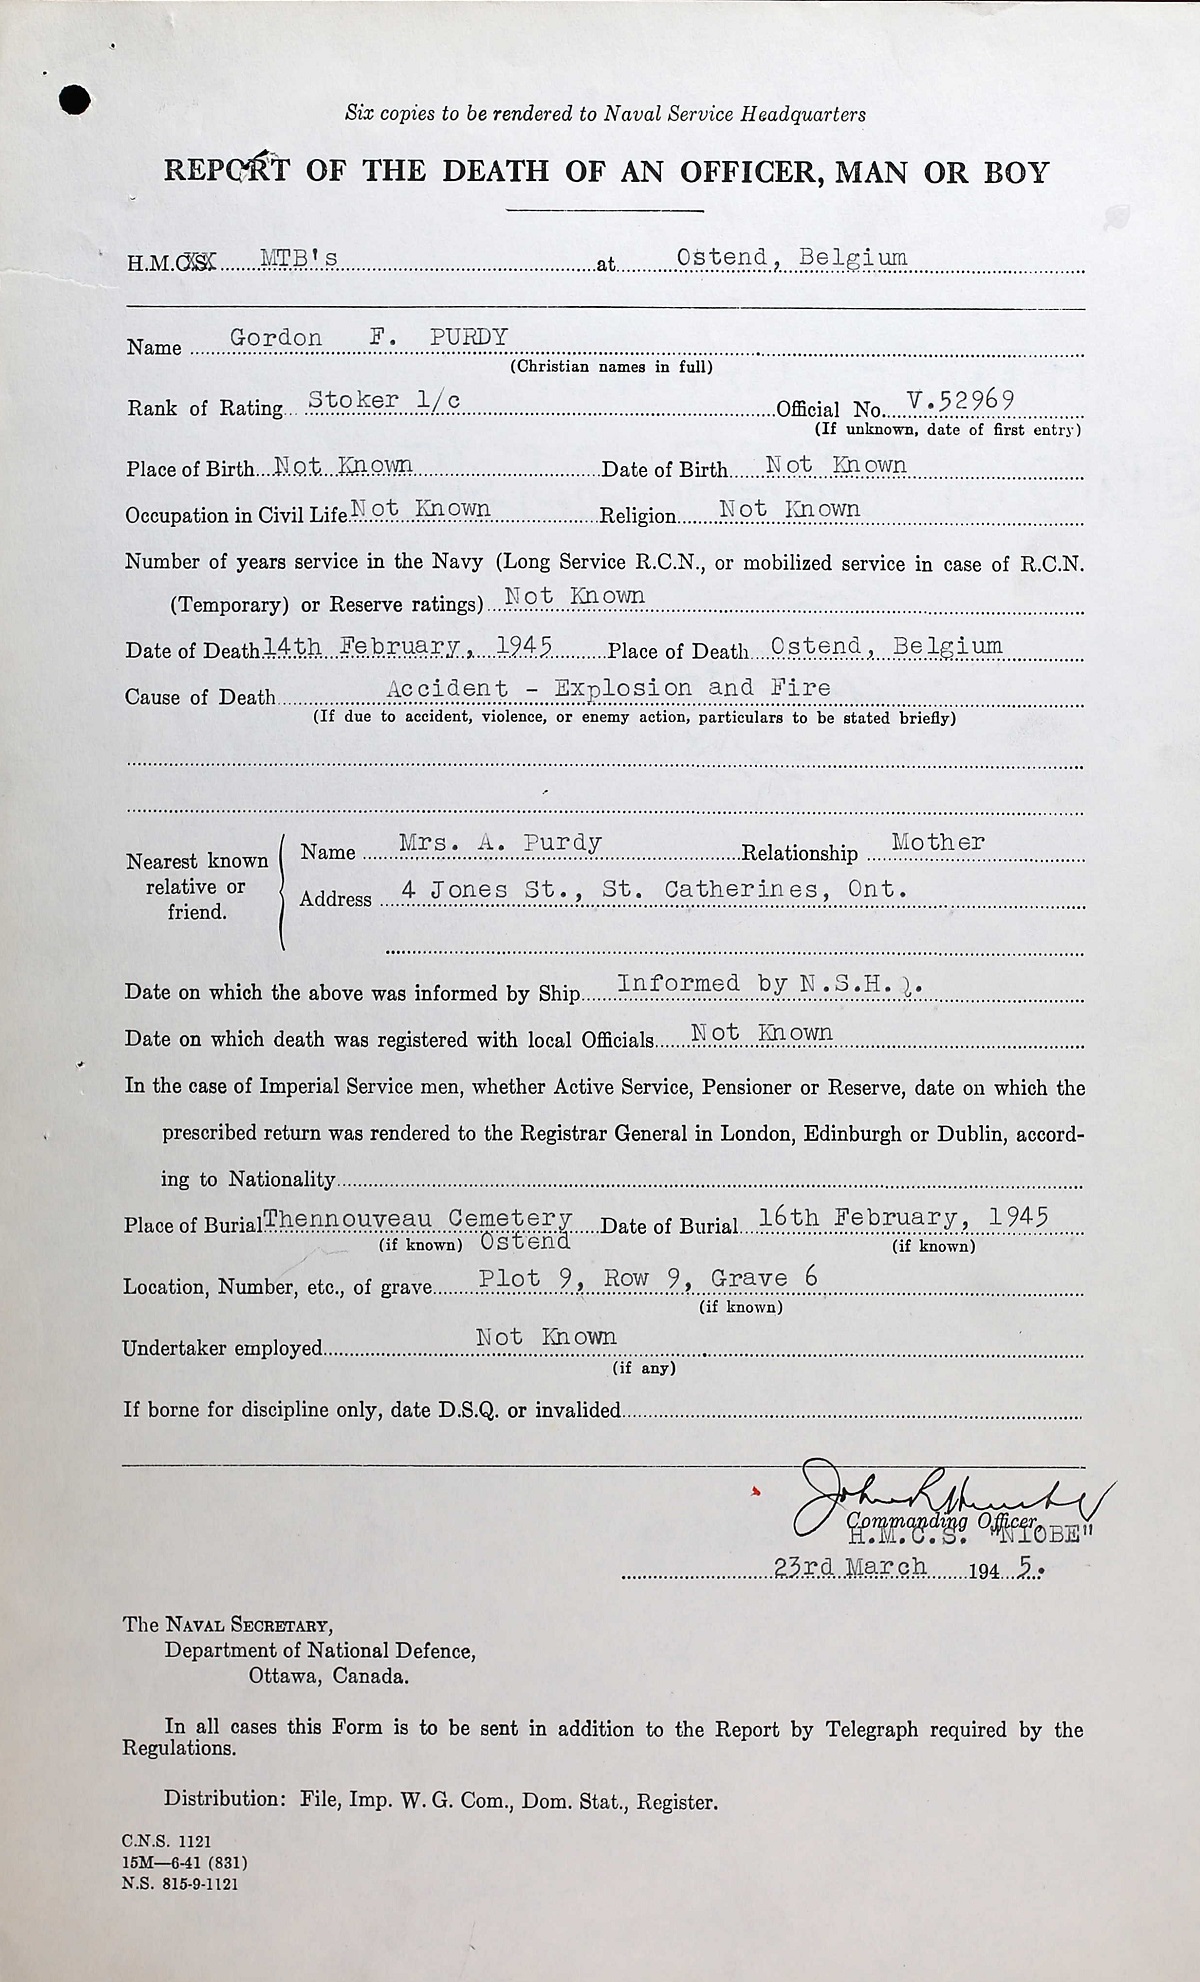 Six copies to be rendered to Naval Service Headquarters
REPORT OF THE DEATH OF AN OFFICER, MAN OR BOY
H.M.C.S. MTB's at Ostend, Belgium
Name Gordon F. PURDY
(Christian names in full)
Rank of Rating Stoker 1/c Official No. V.52969
(If unknown, date of first entry)
Place of Birth Not Known Date of Birth Not Known
Occupation in Civil Life Not Known Religion Not Known
Number of years service in the Navy (Long Service R.C.N., or mobilized service in case of R.C.N.
(Temporary) or Reserve ratings) Not Known
Date of Death 14th February, 1945 Place of Death Ostend, Belgium
Cause of Death Accident - Explosion and Fire
(If due to accident, violence, or enemy action, particulars to be stated briefly)
Nearest known relative or friend.
Name Mrs. A. Purdy Relationship Mother
Address 4 Jones St., St. Catherines, Ont.
Date on which the above was informed by Ship Informed by N.S.H.Q.
Date on which death was registered with local Officials Not Known
In the case of Imperial Service men, whether Active Service, Pensioner or Reserve, date on which the
prescribed return was rendered to the Registrar General in London, Edinburgh or Dublin, accord-
ing to Nationality
Place of Burial Thennouveau Cemetery Date of Burial 16th February, 1945
(if known) Ostend (if known)
Location, Number, etc., of grave Plot 9, Row 9, Grave 6
(if known)
Undertaker employed Not Known
(if any)
If borne for discipline only, date D.S.Q. or invalided
Commanding Officer,
H.M.C.S. "NIOBE"
23rd March 1945.
The NAVAL SECRETARY,
Department of National Defence,
Ottawa, Canada.
In all cases this Form is to be sent in addition to the Report by Telegraph required by the
Regulations.
Distribution: File, Imp. W. G. Com., Dom. Stat., Register.
C.N.S. 1121
15M—6-41 (831)
N.S. 815-9-1121